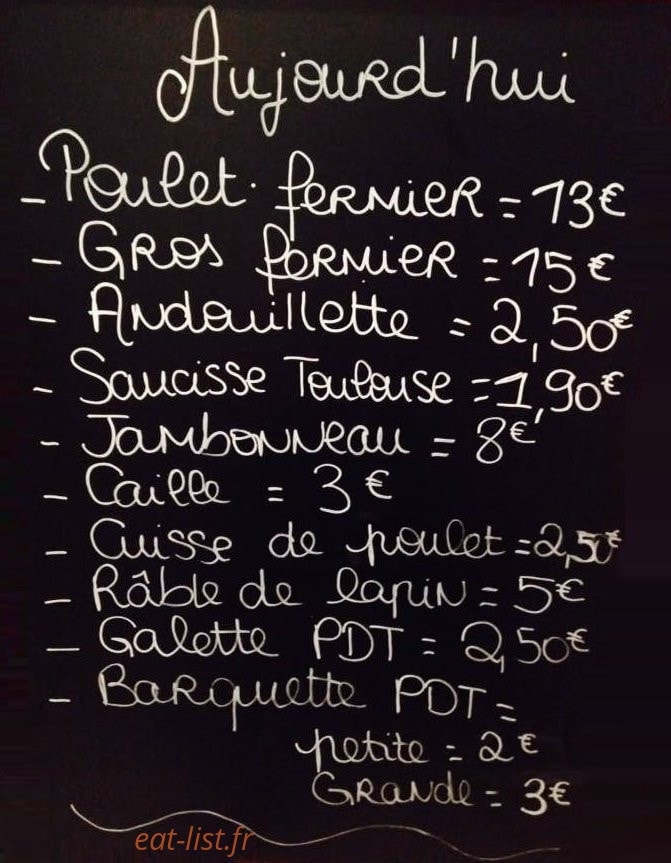 Aujourd'hui
- Poulet fermier = 13€
- Gros fermier = 15€
- Andouillette = 2,50€
- Saucisse Toulouse = 1,90€
- Jambonneau = 8€
- Caille = 3€
- Cuisse de poulet = 2,50€
- Râble de lapin = 5€
- Galette PDT = 2,50€
- Barquette PDT =
petite = 2€
Grande = 3€
eat-list.fr